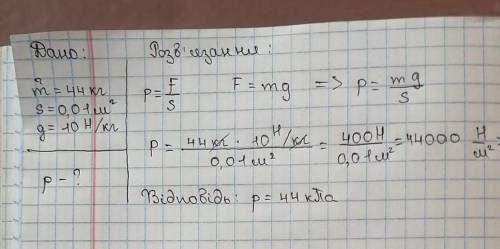 Дано:
m = 44 кг
s = 0,01 м²
g = 10 Н/кг
p - ?
Розв'язання:
p = F/S F = mg => p = mg/S
p = 44 кг · 10 Н/кг / 0,01 м² = 400Н / 0,01 м² = 44000 Н/м² =
Відповідь: p = 44 кПа